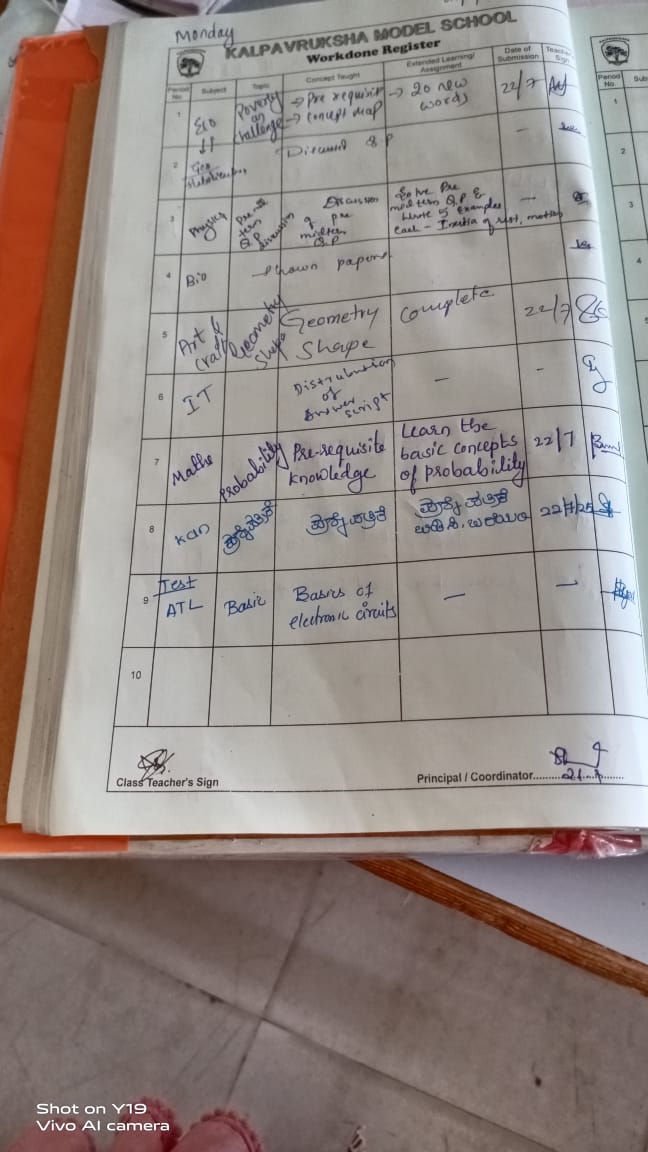 Monday
KALPAVRUKSHA MODEL SCHOOL
Workdone Register
Period No.
Subject
Topic
Concept Taught
Extended Learning/ Assignment
Date of Submission
Teacher Sign
1
Eco
Poverty as challenge
→ Pre requisit
→ Concept map
→ 20 new words
22/7
2
Discussed Q P
-
3
Physics
Pre-mid term Q.P discussion
Discussion of pre midterm Q.P
Solve Pre
midterm Q.P &
Write 5 Examples
each - Inertia of rest, motion
-
4
Bio
Shown papers
5
Art & craft
Geometry Shape
Geometry
Shape
Complete
22/7
6
IT
Distrubution
of
Answer
Script
-
-
7
Maths
Probability
Pre-requisite
knowledge
Learn the
basic concepts
of probability
22/7
8
Kan
22/7/25
9
Test
ATL
Basic
Basics of
electronic circuits
-
-
10
Class Teacher's Sign
Principal / Coordinator
Period No.
Sub
1
2
3
4
Shot on Y19
Vivo AI camera